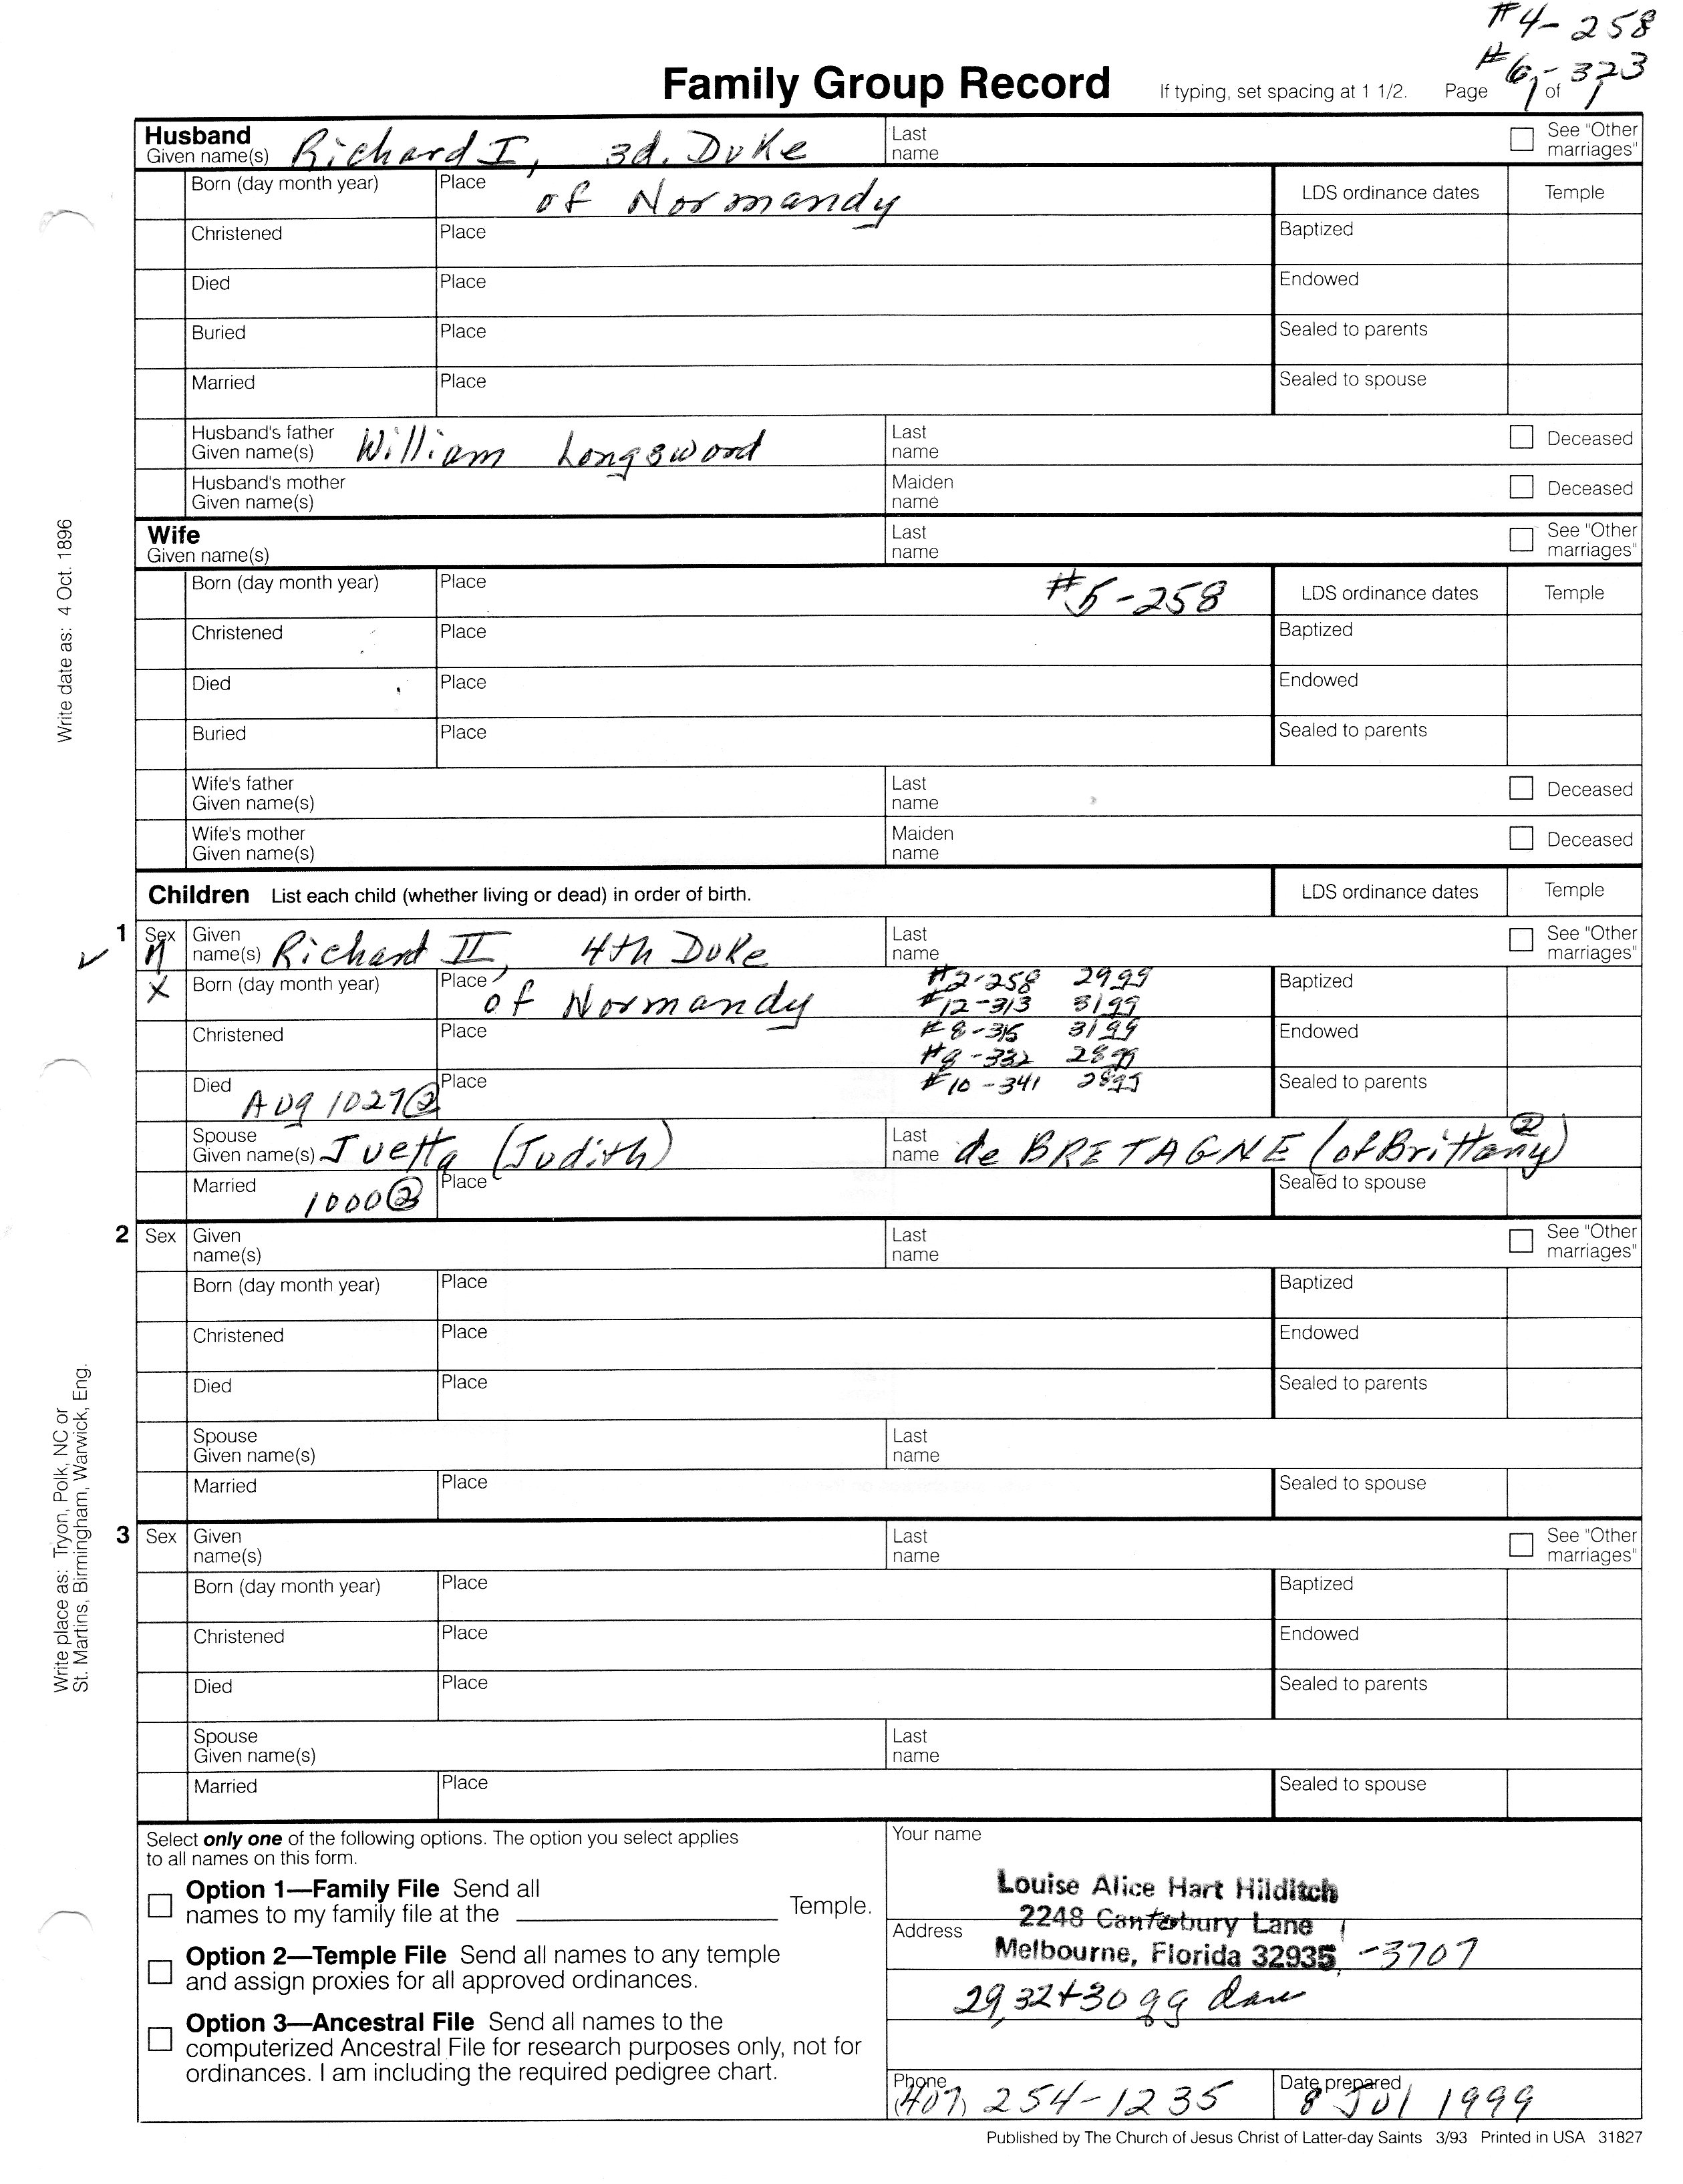 #4-258
#6-323
Family Group Record If typing, set spacing at 1 1/2. Page 1 of 1
Husband
Given name(s) Richard I, 3d. Duke Last name See "Other marriages"
Born (day month year) Place of Normandy LDS ordinance dates Temple
Christened Place Baptized
Died Place Endowed
Buried Place Sealed to parents
Married Place Sealed to spouse
Husband's father Given name(s) William Longsword Last name Deceased
Husband's mother Given name(s) Maiden name Deceased
Wife
Given name(s) Last name See "Other marriages"
Born (day month year) Place #5-258 LDS ordinance dates Temple
Christened Place Baptized
Died Place Endowed
Buried Place Sealed to parents
Wife's father Given name(s) Last name Deceased
Wife's mother Given name(s) Maiden name Deceased
Write date as: 4 Oct. 1896
Children List each child (whether living or dead) in order of birth. LDS ordinance dates Temple
1 Sex M Given name(s) Richard II, 4th Duke Last name See "Other marriages"
X Born (day month year) Place of Normandy #2-258 29gg Baptized
#12-313 31gg
Christened Place #8-315 31gg Endowed
#9-332 28gg
Died Aug 1027 ② Place #10-341 28gg Sealed to parents
Spouse Given name(s) Juetta (Judith) Last name de BRETAGNE (of Brittany) ②
Married 1000 ② Place Sealed to spouse
2 Sex Given name(s) Last name See "Other marriages"
Born (day month year) Place Baptized
Christened Place Endowed
Died Place Sealed to parents
Spouse Given name(s) Last name
Married Place Sealed to spouse
3 Sex Given name(s) Last name See "Other marriages"
Born (day month year) Place Baptized
Christened Place Endowed
Died Place Sealed to parents
Spouse Given name(s) Last name
Married Place Sealed to spouse
Write place as: Tryon, Polk, NC or
St. Martins, Birmingham, Warwick, Eng.
Select only one of the following options. The option you select applies
to all names on this form.
Option 1—Family File Send all
names to my family file at the Temple.
Option 2—Temple File Send all names to any temple
and assign proxies for all approved ordinances.
Option 3—Ancestral File Send all names to the
computerized Ancestral File for research purposes only, not for
ordinances. I am including the required pedigree chart.
Your name
Louise Alice Hart Hilditch
Address 2248 Canterbury Lane
Melbourne, Florida 32935 -3707
29, 32+30 gg dau
Phone (407) 254-1235 Date prepared 8 Jul 1999
Published by The Church of Jesus Christ of Latter-day Saints 3/93 Printed in USA 31827